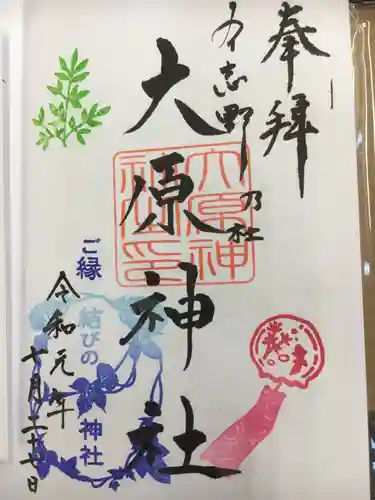 奉拝
なら志野乃社
大原神社
大原神
社之印
ご縁結びの神社
令和元年七月二十七日